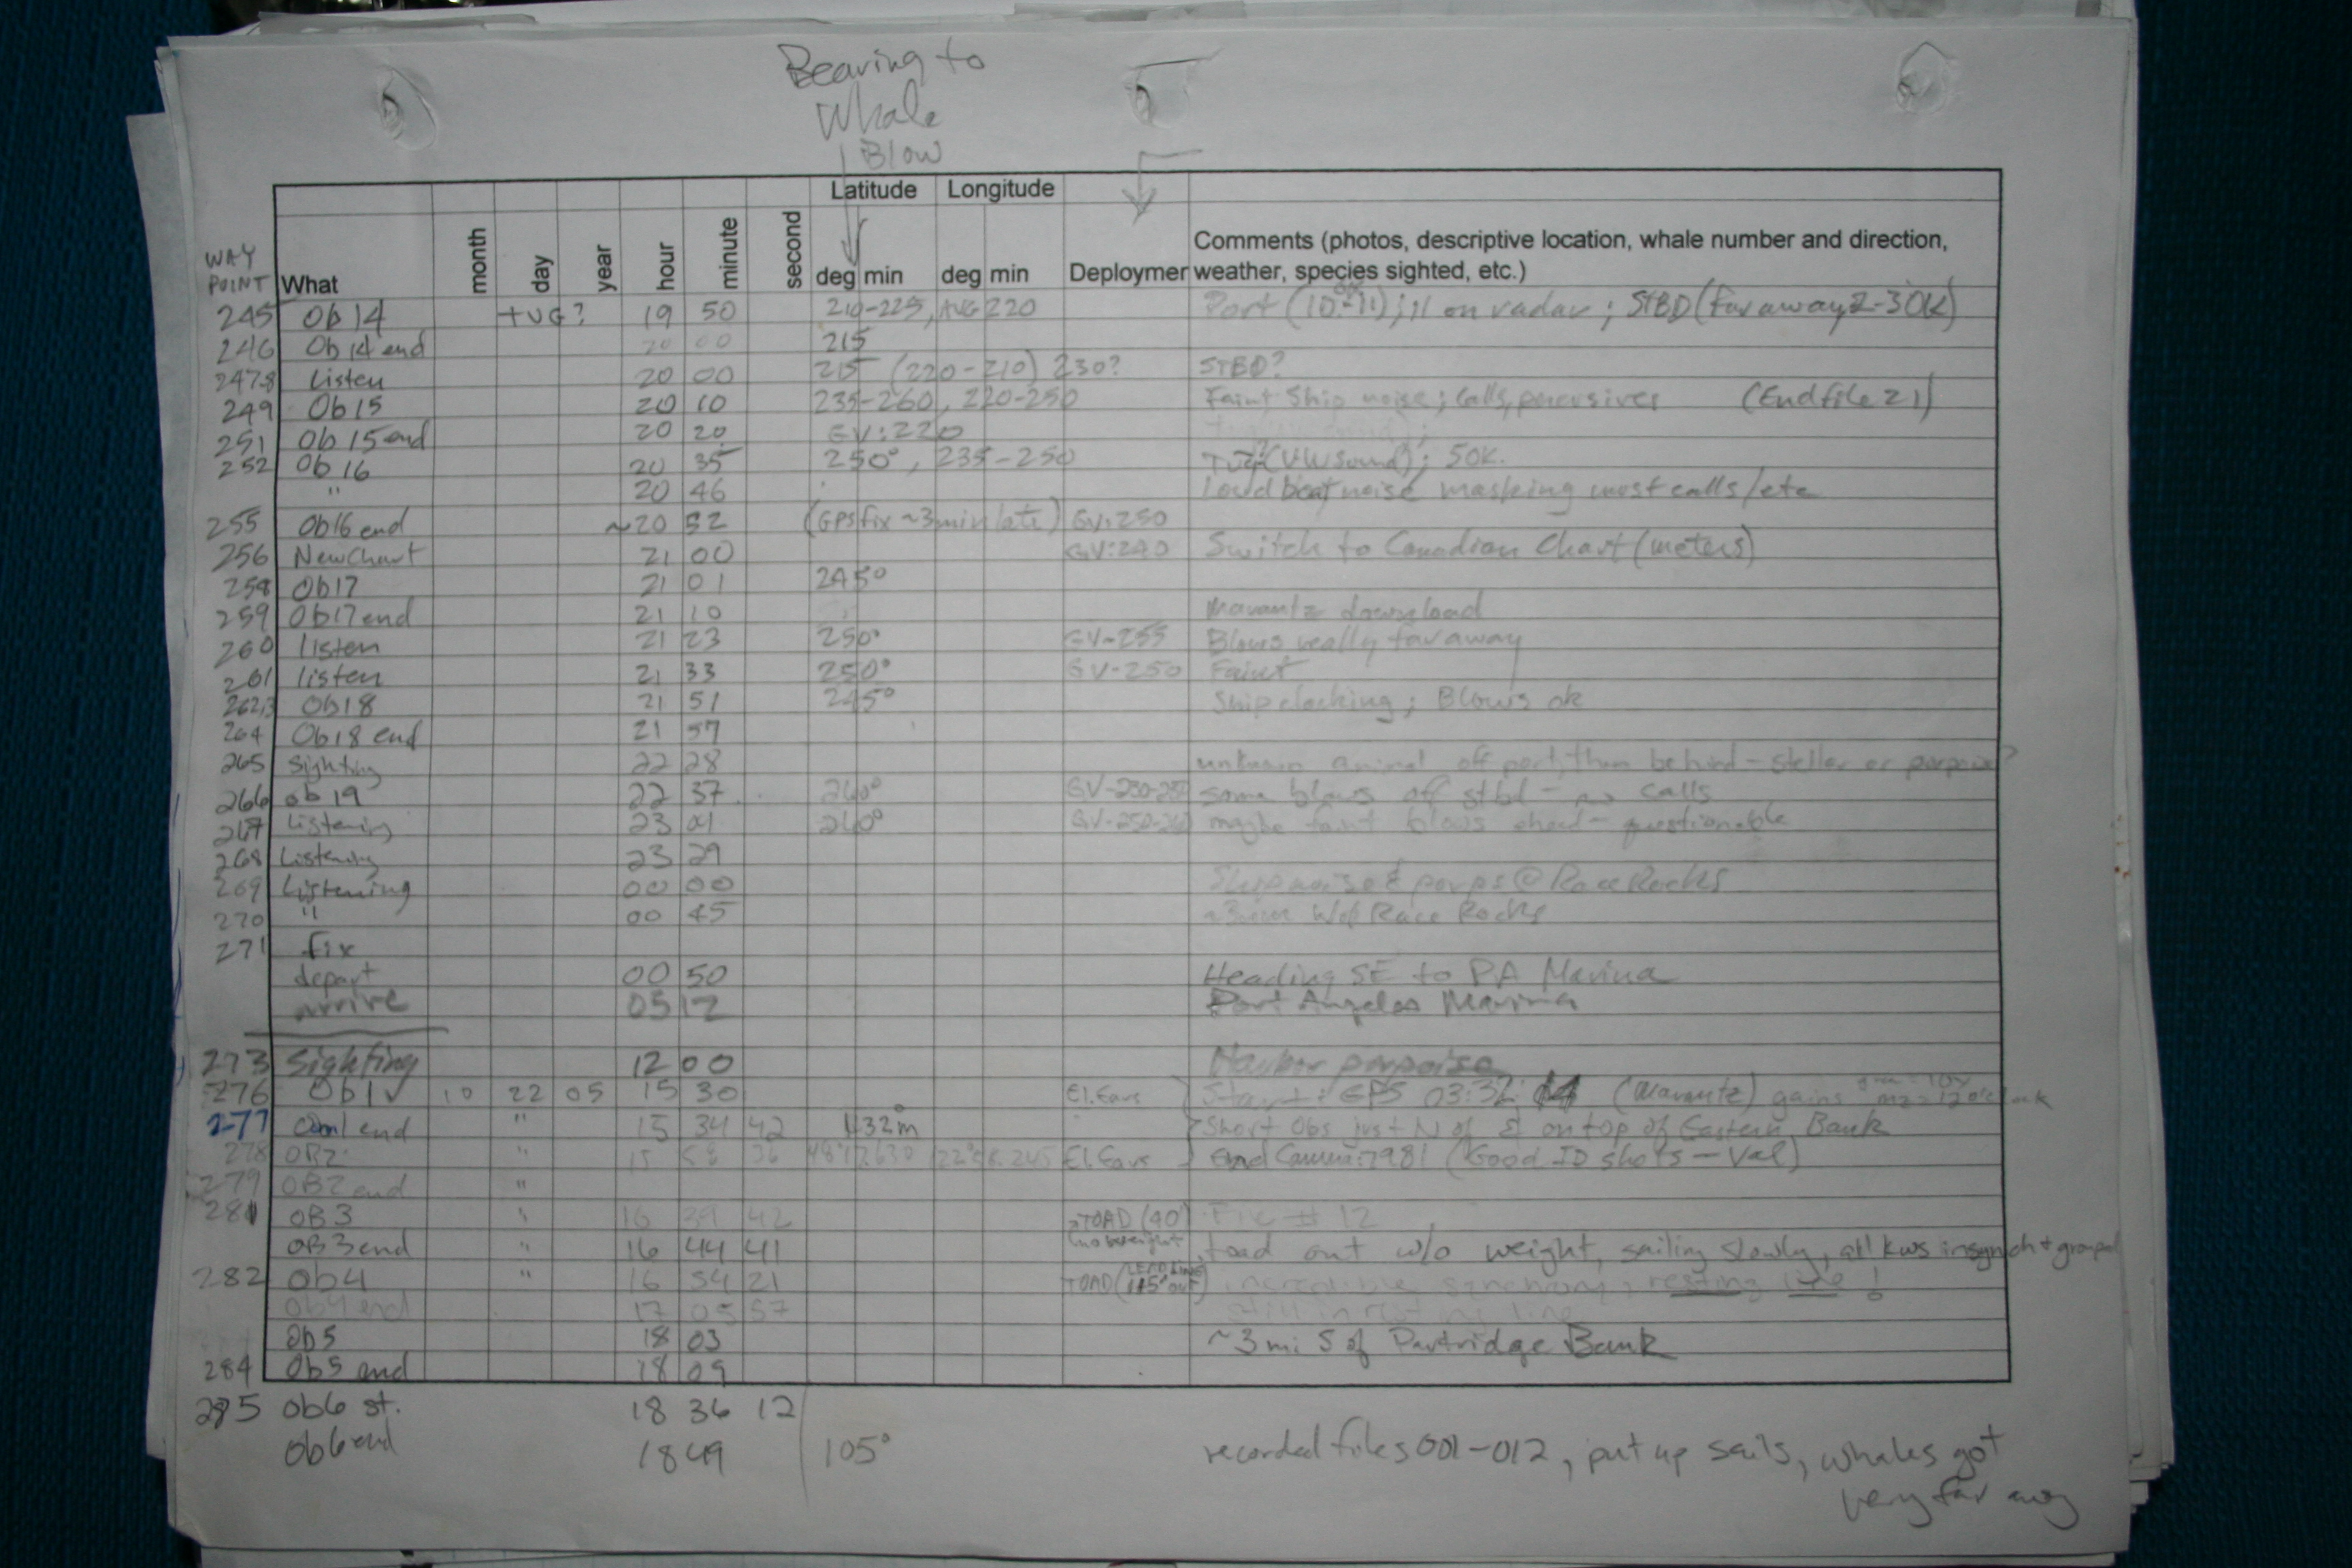 Bearing to
Whale
Blow
Latitude Longitude
WAY POINT What month day year hour minute second deg min deg min Deploymer Comments (photos, descriptive location, whale number and direction, weather, species sighted, etc.)
245 Ob 14 19 50 210-225, AVG 220 Port (10-11); il on radar; STBD (far away 2-30K)
246 Ob 14 end 20 00 215
247.8 Listen 20 00 215 (220-210) 230? STBD?
249 Ob15 20 10 235-260, 220-250 Faint Ship noise; Calls, percusives (End file 21)
251 Ob 15 end 20 20 GV:220
252 Ob 16 20 35 250°, 235-250 50K.
" 20 46 Loud boat noise masking most calls/etc
255 Ob16 end ~20 52 (GPS fix ~3 min late) GV:250
256 New Chart 21 00 GV:240 Switch to Canadian Chart (meters)
258 Ob17 21 01 245°
259 Ob17 end 21 10 Marantz download
260 listen 21 23 250° GV-255 Blows really far away
261 listen 21 33 250° GV-250 Faint
262,3 Ob18 21 51 245° Ship clacking; Blows ok
264 Ob18 end 21 57
265 Sighting 22 28 unknown animal off port, then behind - steller or porpoise?
266 ob 19 22 37 240° some blows off stbd - no calls
267 Listening 23 01 240° maybe faint blows ahead - questionable
268 Listening 23 29
269 Listening 00 00 Ship noise & porps @ Race Rocks
270 " 00 45 W of Race Rocks
271 fix
depart 00 50 Heading SE to PA Marina
arrive 05 12 Port Angeles Marina
273 Sighting 12 00 Harbor porpoise
276 Ob1 10 22 05 15 30 El. Ears Start: GPS 03:32: (Marantz) gains
277 end " 15 34 42 132m Short Obs just N of & on top of Eastern Bank
278 OB2 " 15 58 36 El. Ears End Comma: 7981 (Good ID shots - Val)
279 OB2 end "
281 OB3 " 16 39 42 TOAD (40') Fix # 12
OB3 end " 16 44 41 toad out w/o weight, sailing slowly, all kws in synch + grouped
282 Ob4 " 16 54 21 TOAD (LEAD LINE 115' out) incredible synchrony, resting line!
Ob4 end 17 05 57 still in resting line
Ob5 18 03 ~3 mi S of Partridge Bank
284 Ob5 end 18 09
285 Ob6 st. 18 36 12
Ob6 end 18 49 105° recorded files 001-012, put up sails, whales got
very far away